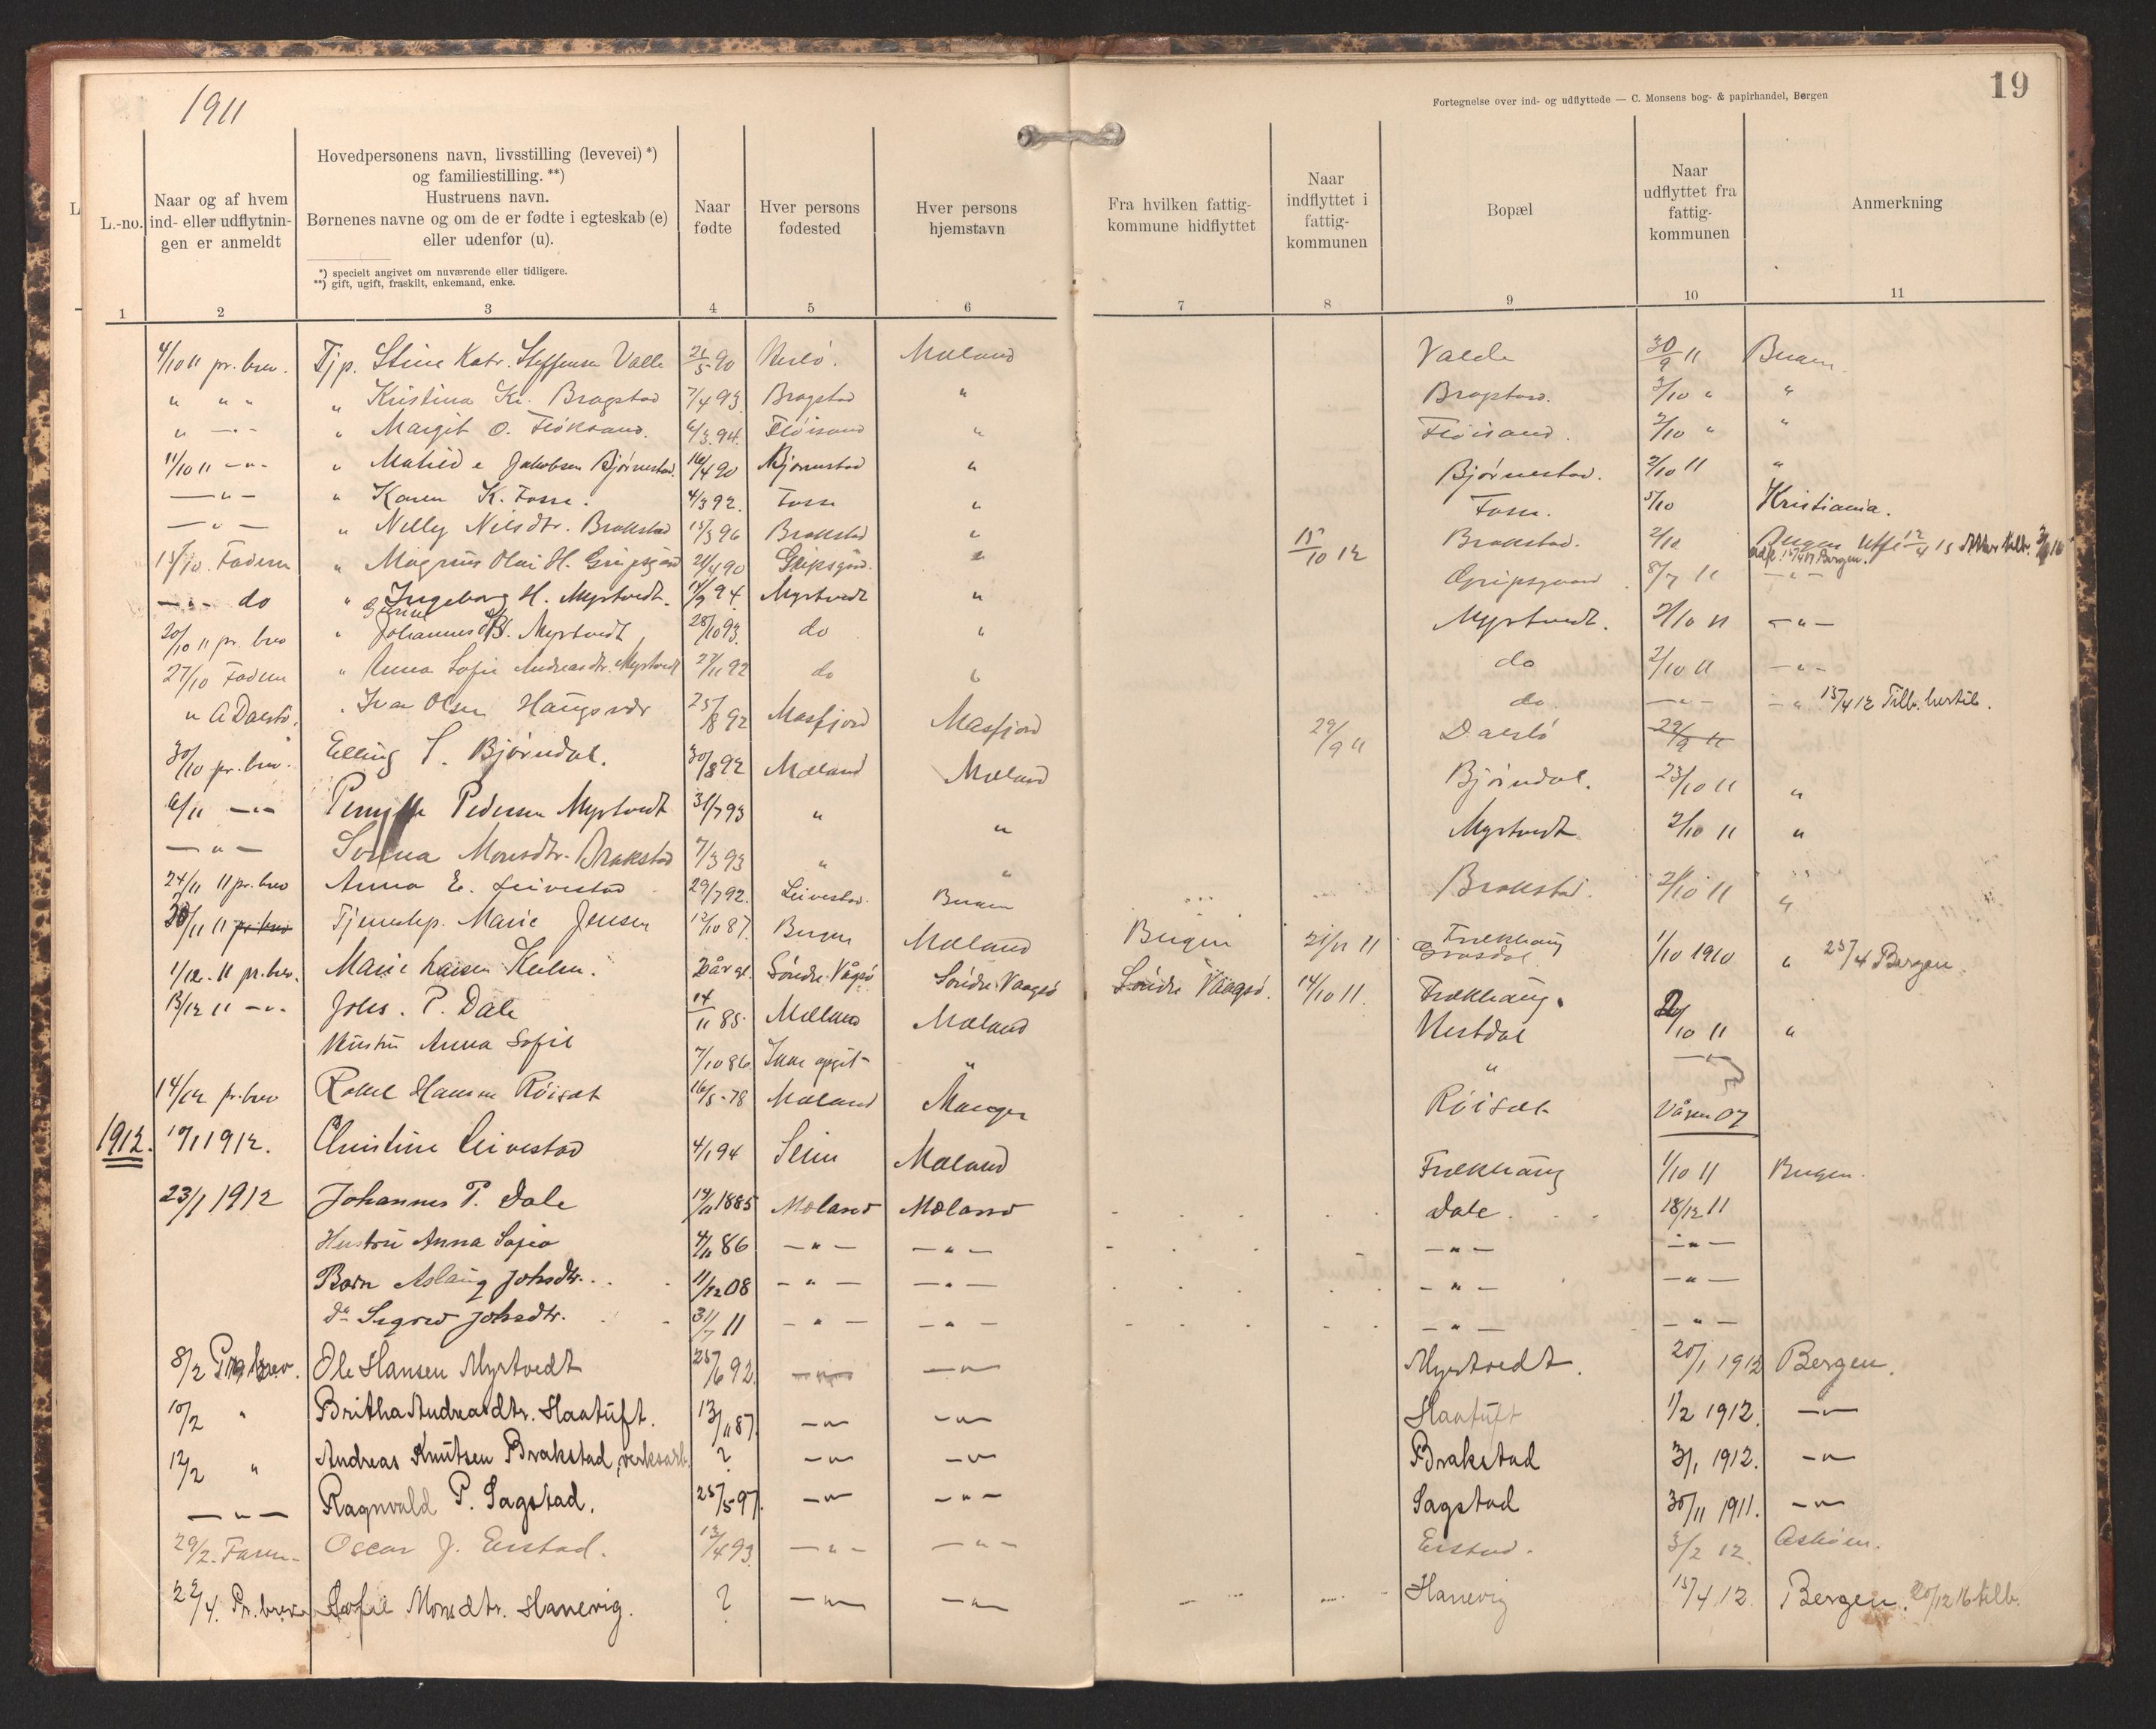 1911
19
Fortegnelse over ind- og udflyttede — C. Monsens bog- & papirhandel, Bergen
L.-no.
Naar og af hvem ind- eller udflytningen er anmeldt
Hovedpersonens navn, livsstilling (levevei) *) og familiestilling. **)
Hustruens navn.
Børnenes navne og om de er fødte i egteskab (e) eller udenfor (u).
*) specielt angivet om nuværende eller tidligere.
**) gift, ugift, fraskilt, enkemand, enke.
Naar fødte
Hver persons fødested
Hver persons hjemstavn
Fra hvilken fattigkommune hidflyttet
Naar indflyttet i fattigkommunen
Bopæl
Naar udflyttet fra fattigkommunen
Anmerkning
1 2 3 4 5 6 7 8 9 10 11
4/10 11 pr. brev. Tjp. Stine Katr. Steffensen Valle 21/5 90 Herlö. Mæland Valle 30/9 11 Bergen
" " " " Kristina Kr. Bragstad 7/4 93 Bragstad " Bragstad. 3/10 " "
" — " — " Margit O. Fløksand. 6/3 94. Fløisand " Fløisand. 2/10 " "
11/10 11 — " — " Mathilde Jakobsen Bjørnestad. 16/4 90 Bjørnestad " Bjørnestad. 2/10 11 "
— " — " Karen K. Fosse. 4/3 92. Fosse " Fosse. 5/10 Kristiania.
— " — " Nelly Nilsdtr. Brakstad 15/3 96 Brakstad " 15/10 12 Brakstad. 2/10 Bergen
13/10. Faderen " Magnus Olai H. Gripsgård 21/4 90 Gripsgård. " Gripsgaard 8/7 11 — " —
— " — do " Ingeborg H. Myrtvedt. 14/9 94. Myrtvedt " Myrtvedt. 2/10 11 — " —
20/10 11 pr. brev " Johannes Myrtvedt 28/10 93. do " do 2/10 11 — " —
27/10 Faderen " Anna Sofie Andreasdr. Myrtvedt 27/11 92 do " do — " — — " 15/4 12 Tilb. hertil.
" A Dalstö. Ivar Olsen Haugsvær 25/8 92 Masfjord Masfjord 29/9 11 Dalstö 29/9 11
30/10 pr. brev. Elling S. Bjørndal. 30/8 92 Mæland Mæland Bjørndal. 23/10 11 "
6/11 — " — Pernille Pedersen Myrtvedt 31/7 93 " " Myrtvedt 2/10 11 "
— " — Monsdtr. Brakstad 7/3 93 " " Brakstad. 2/10 11 "
24/11 11 pr. brev Anna E. Leivestad 29/7 92. Leivestad. Bergen 1/10 1910 " 25/4 Bergen
/11 11 pr. brev Tjenestep. Marie Jensen 12/10 87. Bergen Mæland Bergen 21/11 11 Frekhaug
1/12. 11 pr. brev. Marie Larsen 2 år gl. Söndre Vågsö Söndre Vaagsö Söndre Vaagsö. 14/10 11. Frekhaug.
13/12 11 — " — Johs. P. Dale 14/11 85. Mæland Mæland Nestdal /10 11 "
Hustru Anna Sofie 7/10 86. Ikke opgit " " — " —
14/12 pr. brev Rakel Hansen Röisat 16/5 - 78 Mæland Manger Röisat Våren 07
1912. 19/1 1912. Christine Leivestad 4/1 94 Seim Mæland Frekhaug 1/10 11 Bergen.
23/1 1912 Johannes P. Dale 14/11 1885 Mæland Mæland Dale. 18/12 11
Hustru Anna Sofia 4/11 86 — " — — " — — " — — " —
Barn Aslaug Johsdtr. 11/12 08 — " — — " — — " — — " —
do Sigrid Johsdtr. 31/7 11 — " — — " — — " — — " —
8/2 Pr. brev. Ole Hansen Myrtvedt 25/6 92. — " — — " — Myrtvedt. 20/1 1912 Bergen.
10/2 " Britha Andreasdtr. Haatuft. 13/11 87. — " — — " — Haatuft 1/2 1912. — " —
12/2 " Andreas Knutsen Brakstad, verksarb. ? — " — — " — Brakstad 3/1 1912. — " —
— " — Ragnvald P. Sagstad. 25/5 97. — " — — " — Sagstad 30/11 1911. — " —
29/2. Faren Oscar J. Eistad. 13/4 93. — " — — " — Eistad. 3/2 12. Askøen.
22/4. Pr. brev Sofie Monsdtr. Hanevig. ? — " — — " — Hanevig 15/4 12. Bergen. 20/12 16 tilb.